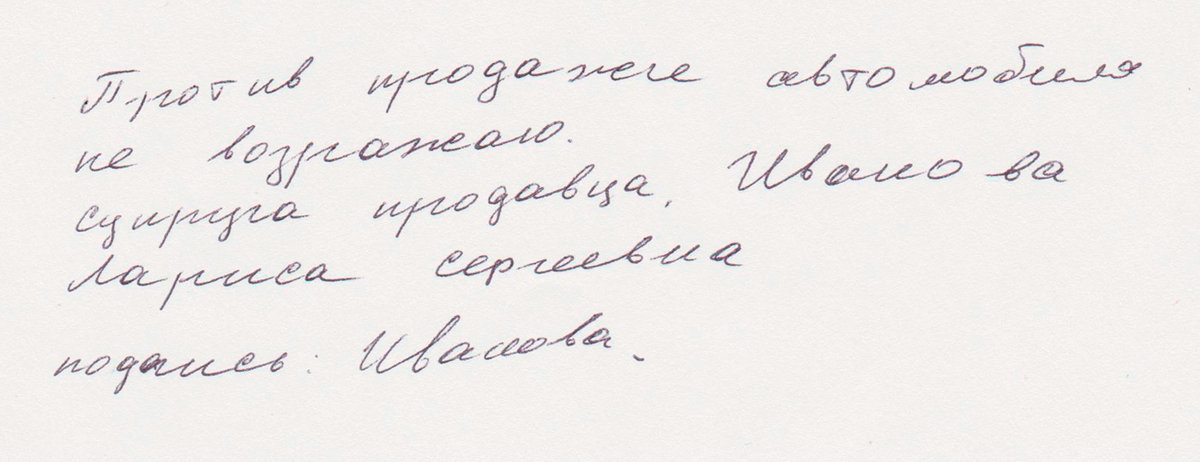 Против продаже автомобиля
не возражаю.
супруга продавца, Иванова
Лариса сергеевна
подпись: Иванова.